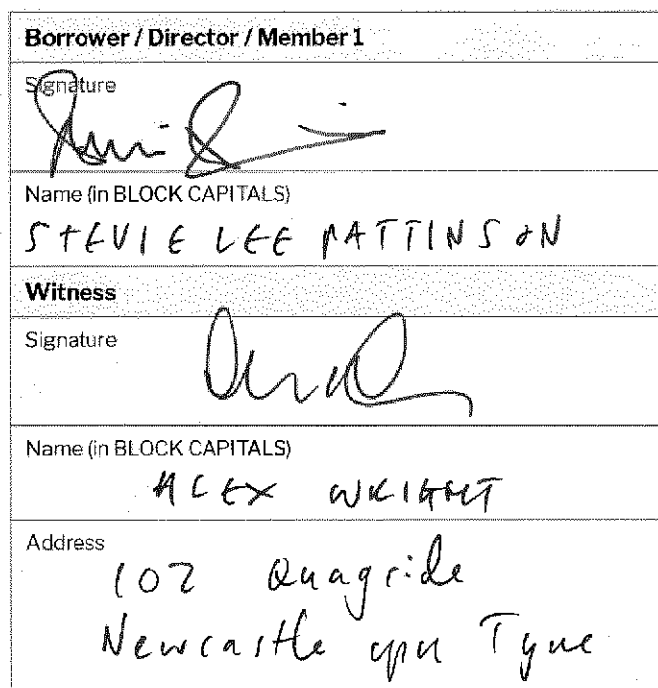 Borrower / Director / Member 1
Signature
Name (in BLOCK CAPITALS)
STEVIE LEE PATTINSON
Witness
Signature
Name (in BLOCK CAPITALS)
ALEX WRIGHT
Address
102 Quayside
Newcastle upn Tyne